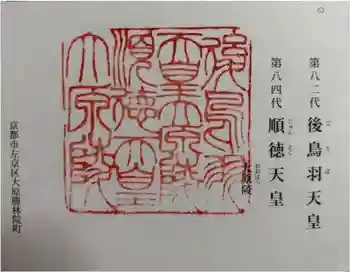 第八二代 後鳥羽天皇
ご と ば
第八四代 順徳天皇
じゅん とく
大原陵
後鳥羽
天皇大原陵
順徳天皇
大原陵
京都市左京区大原勝林院町